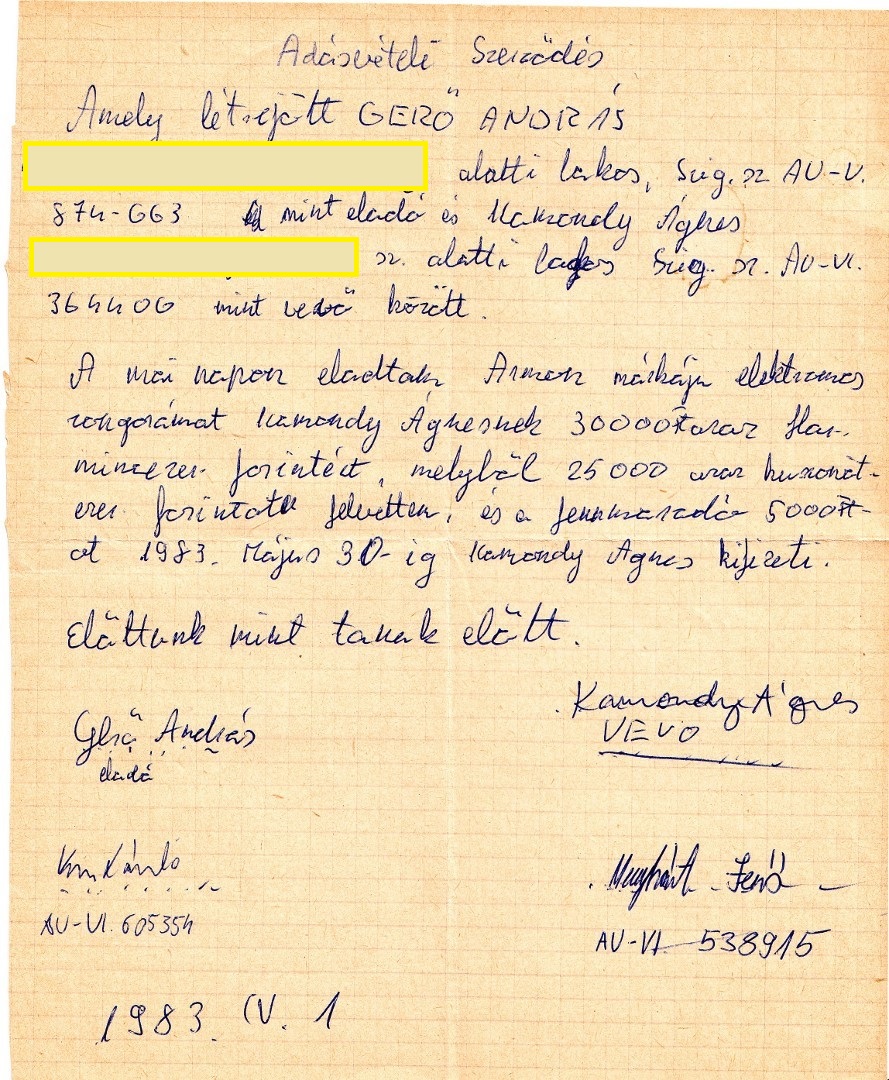 Adásvételi Szerződés
Amely létrejött GERŐ ANDRÁS
alatti lakos, Szig. sz AU-V.
874-663 mint eladó és Kamondy Ágnes
sz. alatti lakos Szig. sz. AU-VI.
364406 mint vevő között.
A mai napon eladtam Armon márkájú elektromos
zongorámat Kamondy Ágnesnek 30000Ft azaz Har-
mincezer forintért, melyből 25000 azaz huszonöt-
ezer forintot felvettem, és a fennmaradó 5000Ft-
ot 1983. Május 30-ig Kamondy Ágnes kifizeti.
Előttünk mint tanuk előtt.
Kamondy Ágnes
VEVO
Gerő András
eladó
Jenő
AU-VI. 605354
AU-VI 538915
1983. IV. 1